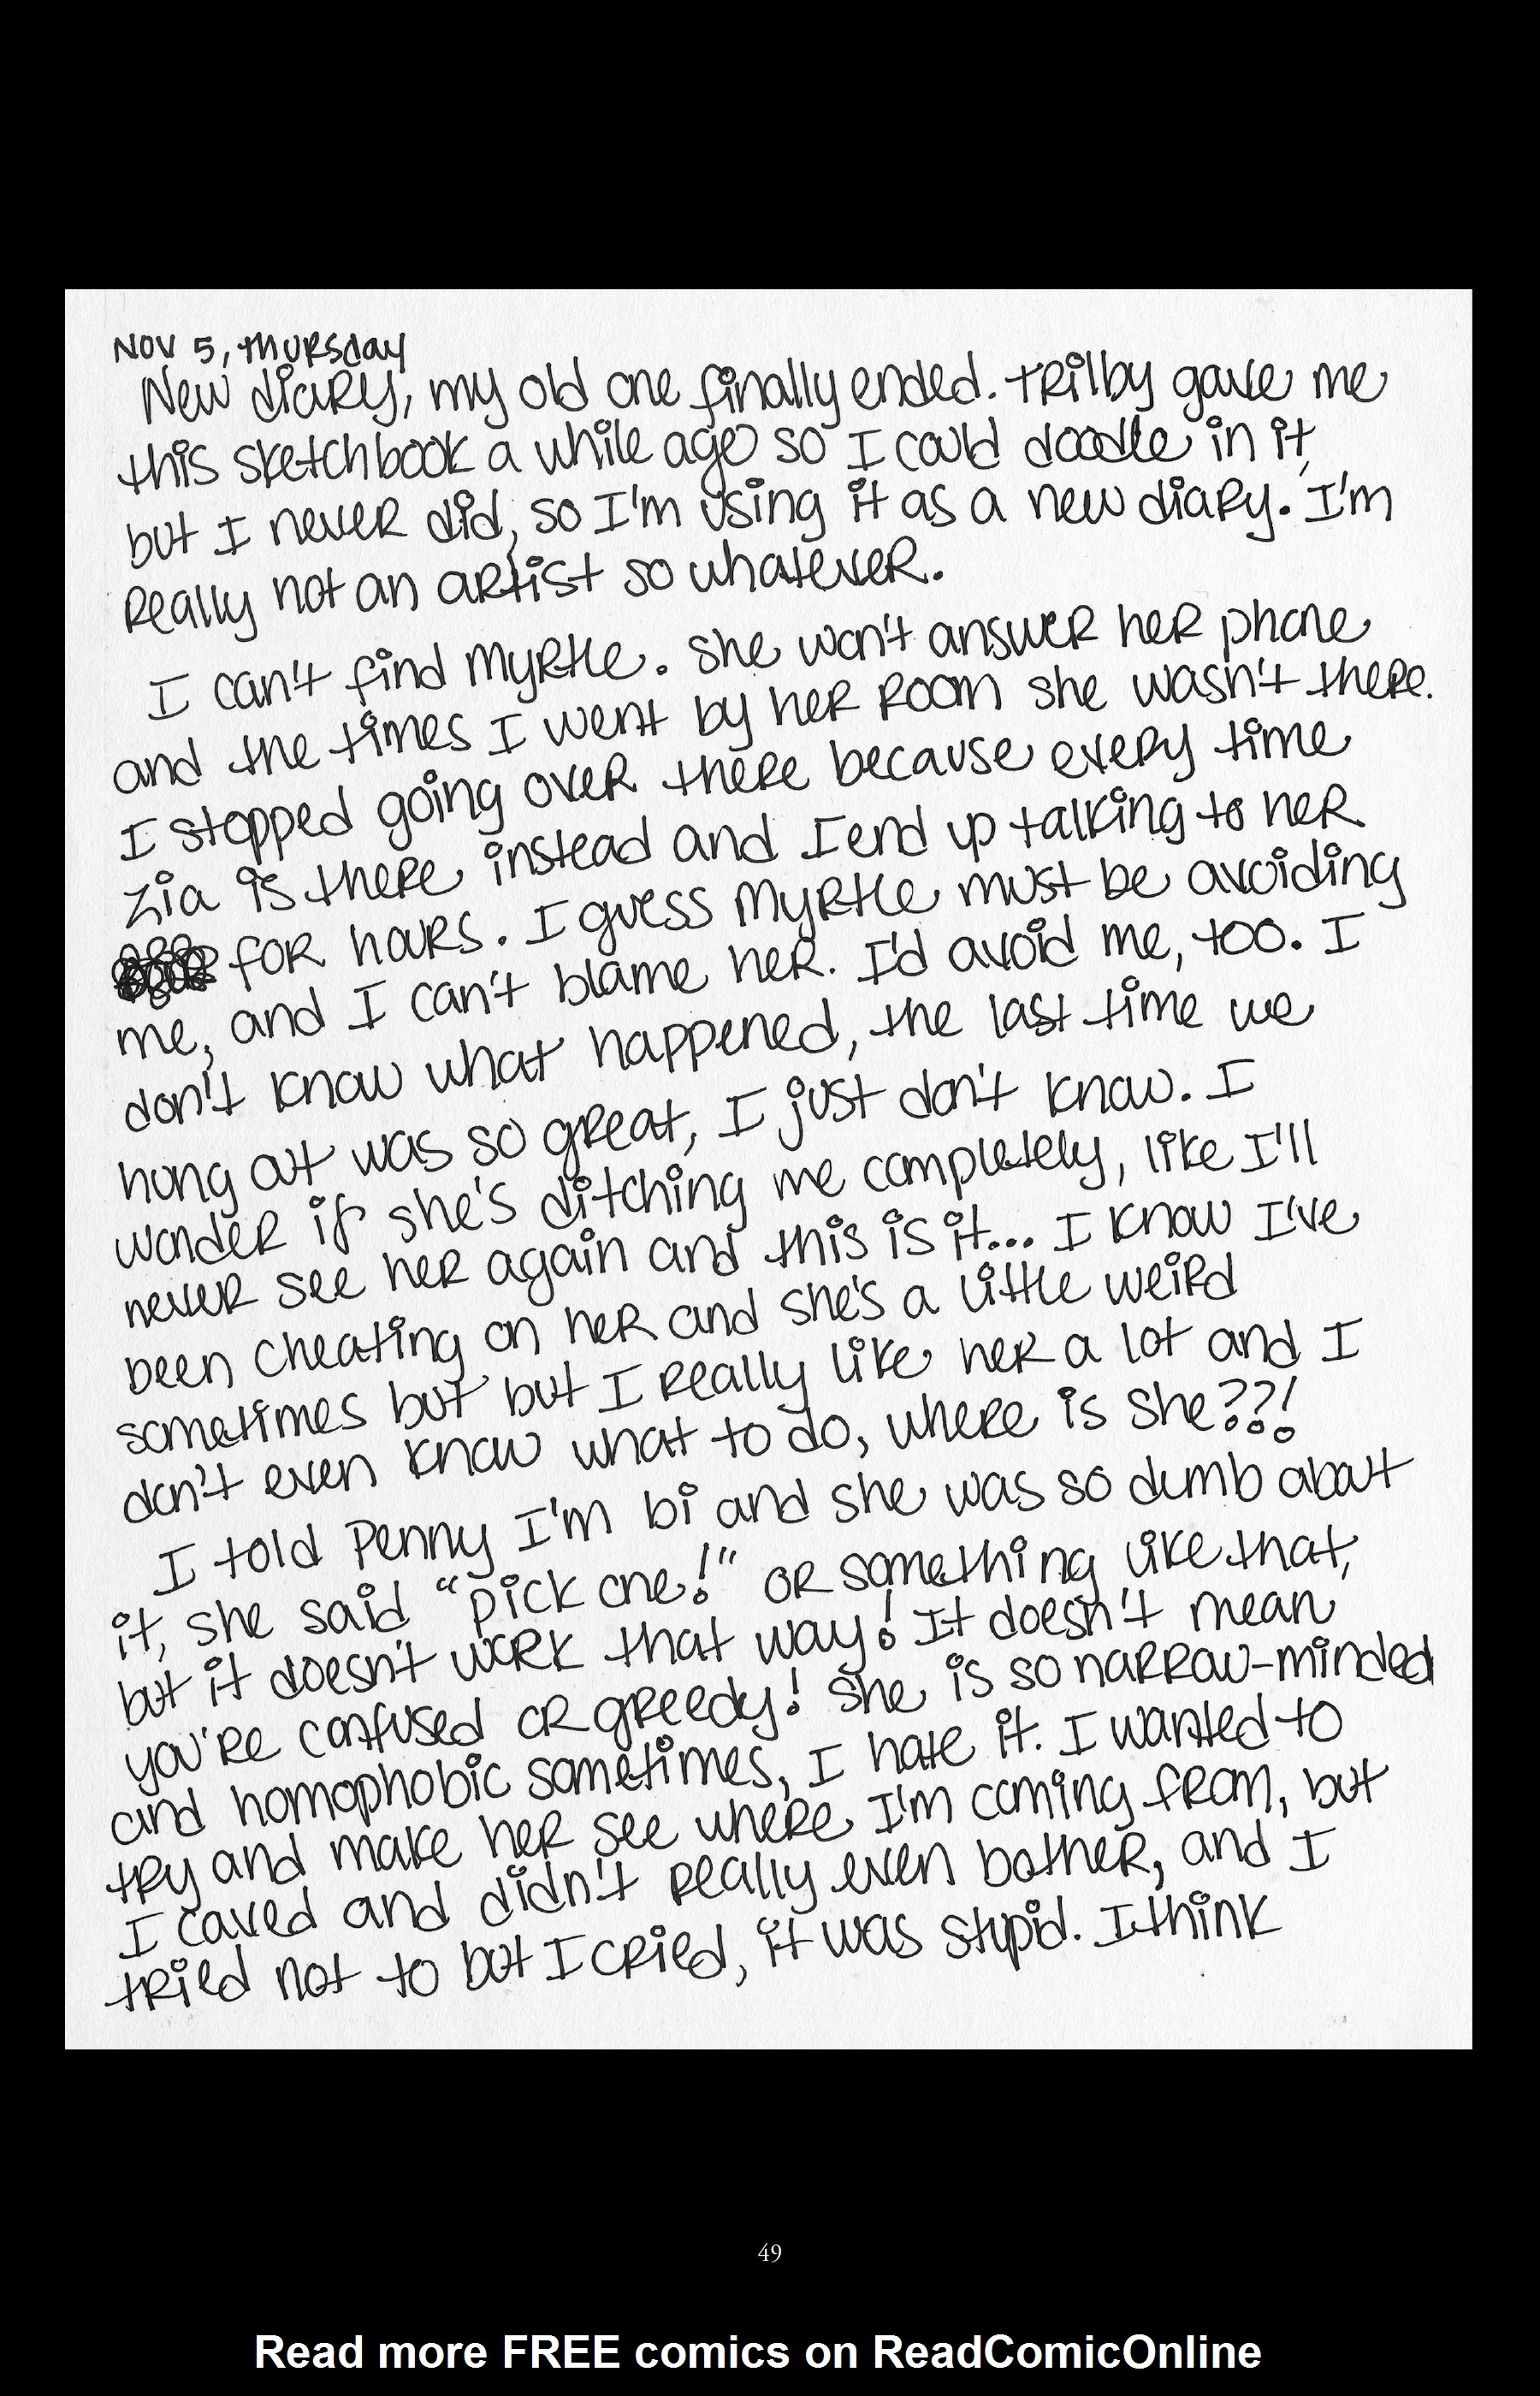 NOV 5, THURSday
New diary, my old one finally ended. Trilby gave me
this sketchbook a while ago so I could doodle in it,
but I never did, so I'm using it as a new diary. I'm
really not an artist so whatever.
I can't find Myrtle. She won't answer her phone
and the times I went by her room she wasn't there.
I stopped going over there because every time
Zia is there instead and I end up talking to her
for hours. I guess Myrtle must be avoiding
me, and I can't blame her. I'd avoid me, too. I
don't know what happened, the last time we
hung out was so great, I just don't know. I
wonder if she's ditching me completely, like I'll
never see her again and this is it... I know I've
been cheating on her and she's a little weird
sometimes but but I really like her a lot and I
don't even know what to do, where is she??!
I told Penny I'm bi and she was so dumb about
it, she said "pick one!" or something like that,
but it doesn't work that way! It doesn't mean
you're confused or greedy! She is so narrow-minded
and homophobic sometimes, I hate it. I wanted to
try and make her see where I'm coming from, but
I caved and didn't really even bother, and I
tried not to but I cried, it was stupid. I think
49
Read more FREE comics on ReadComicOnline